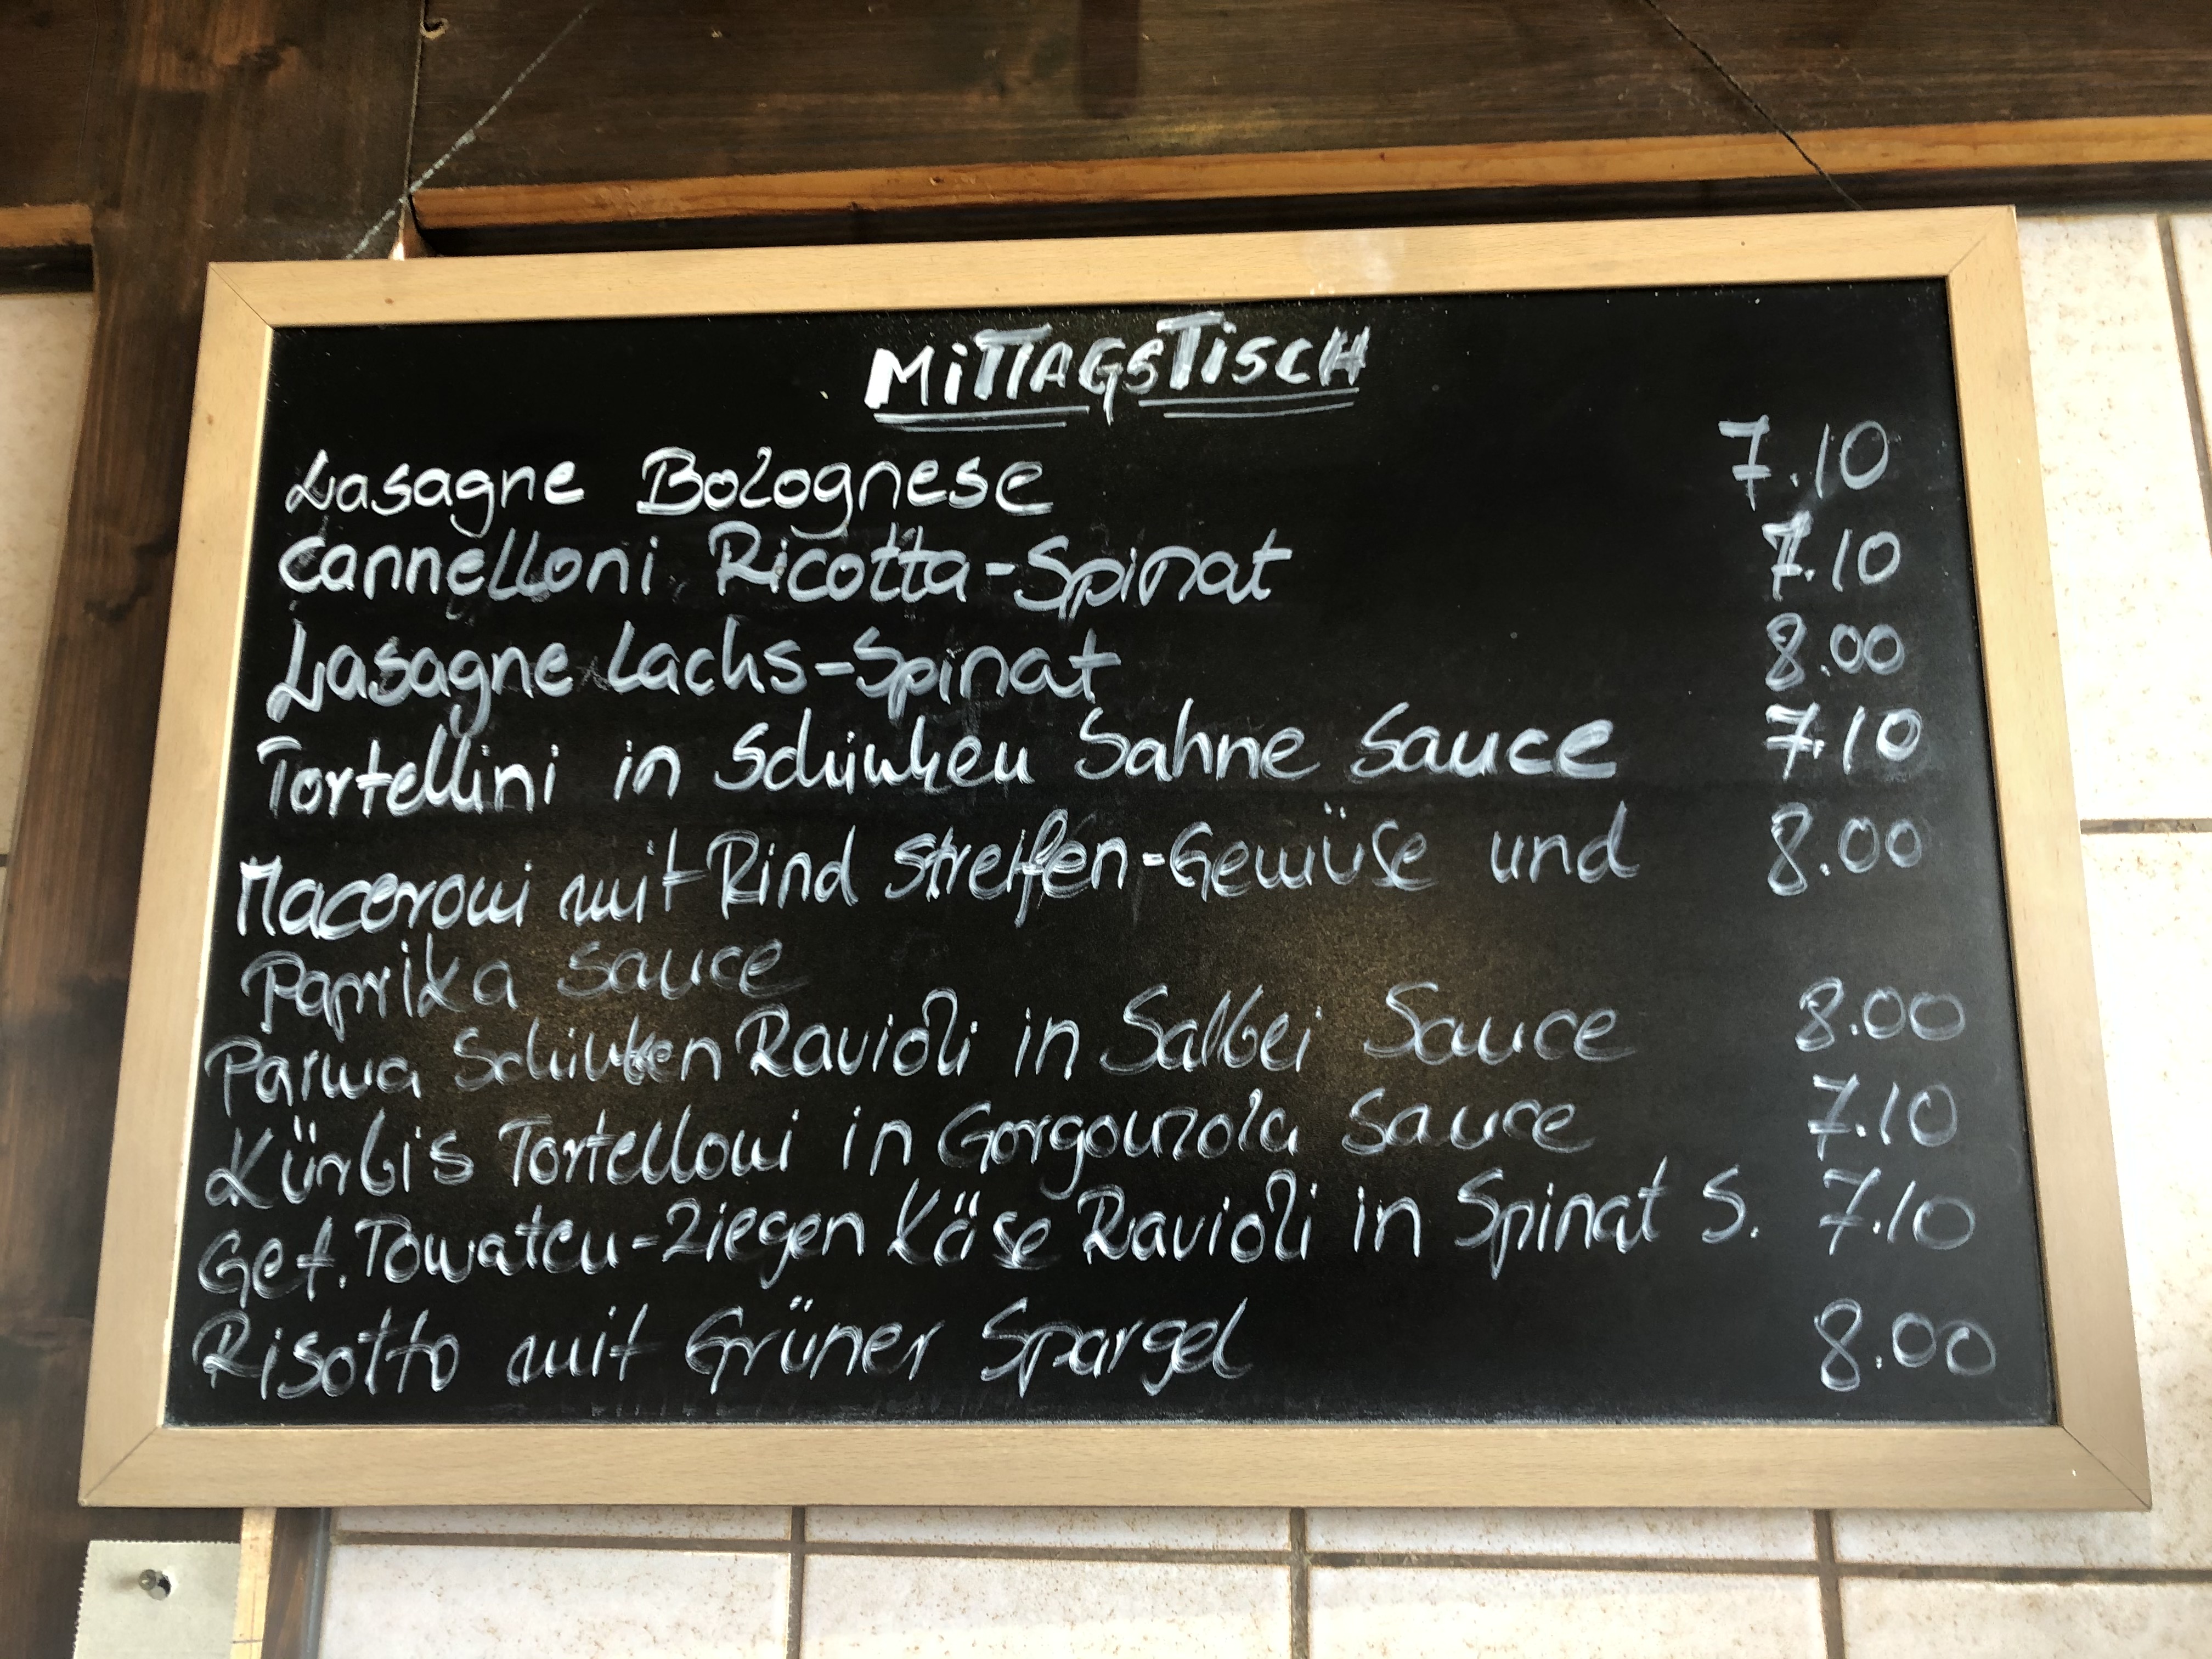 MITTAGSTISCH
Lasagne Bolognese 7.10
Cannelloni Ricotta-Spinat 7.10
Lasagne Lachs-Spinat 8.00
Tortellini in Schinken Sahne Sauce 7.10
Maceroni mit Rind Streifen-Gewüse und 8.00
Paprika Sauce
Parma Schinken Ravioli in Salbei Sauce 8.00
Kürbis Tortelloni in Gorgonzola Sauce 7.10
Get. Tomaten-Ziegen Käse Ravioli in Spinat S. 7.10
Risotto mit Grüner Spargel 8.00